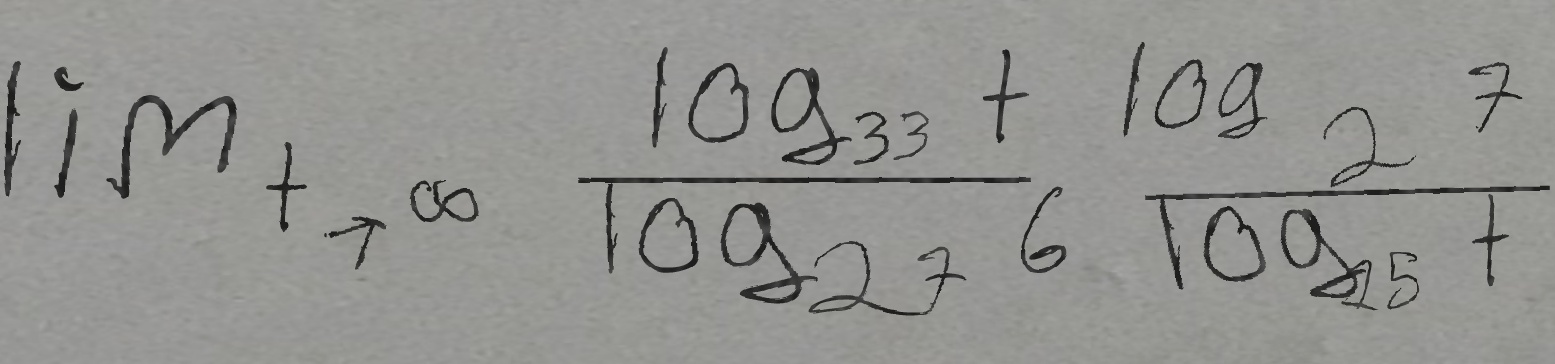 lim_{t \to \infty} \frac{\log_{33} t}{\log_{27} 6} \frac{\log_2 7}{\log_{25} t}